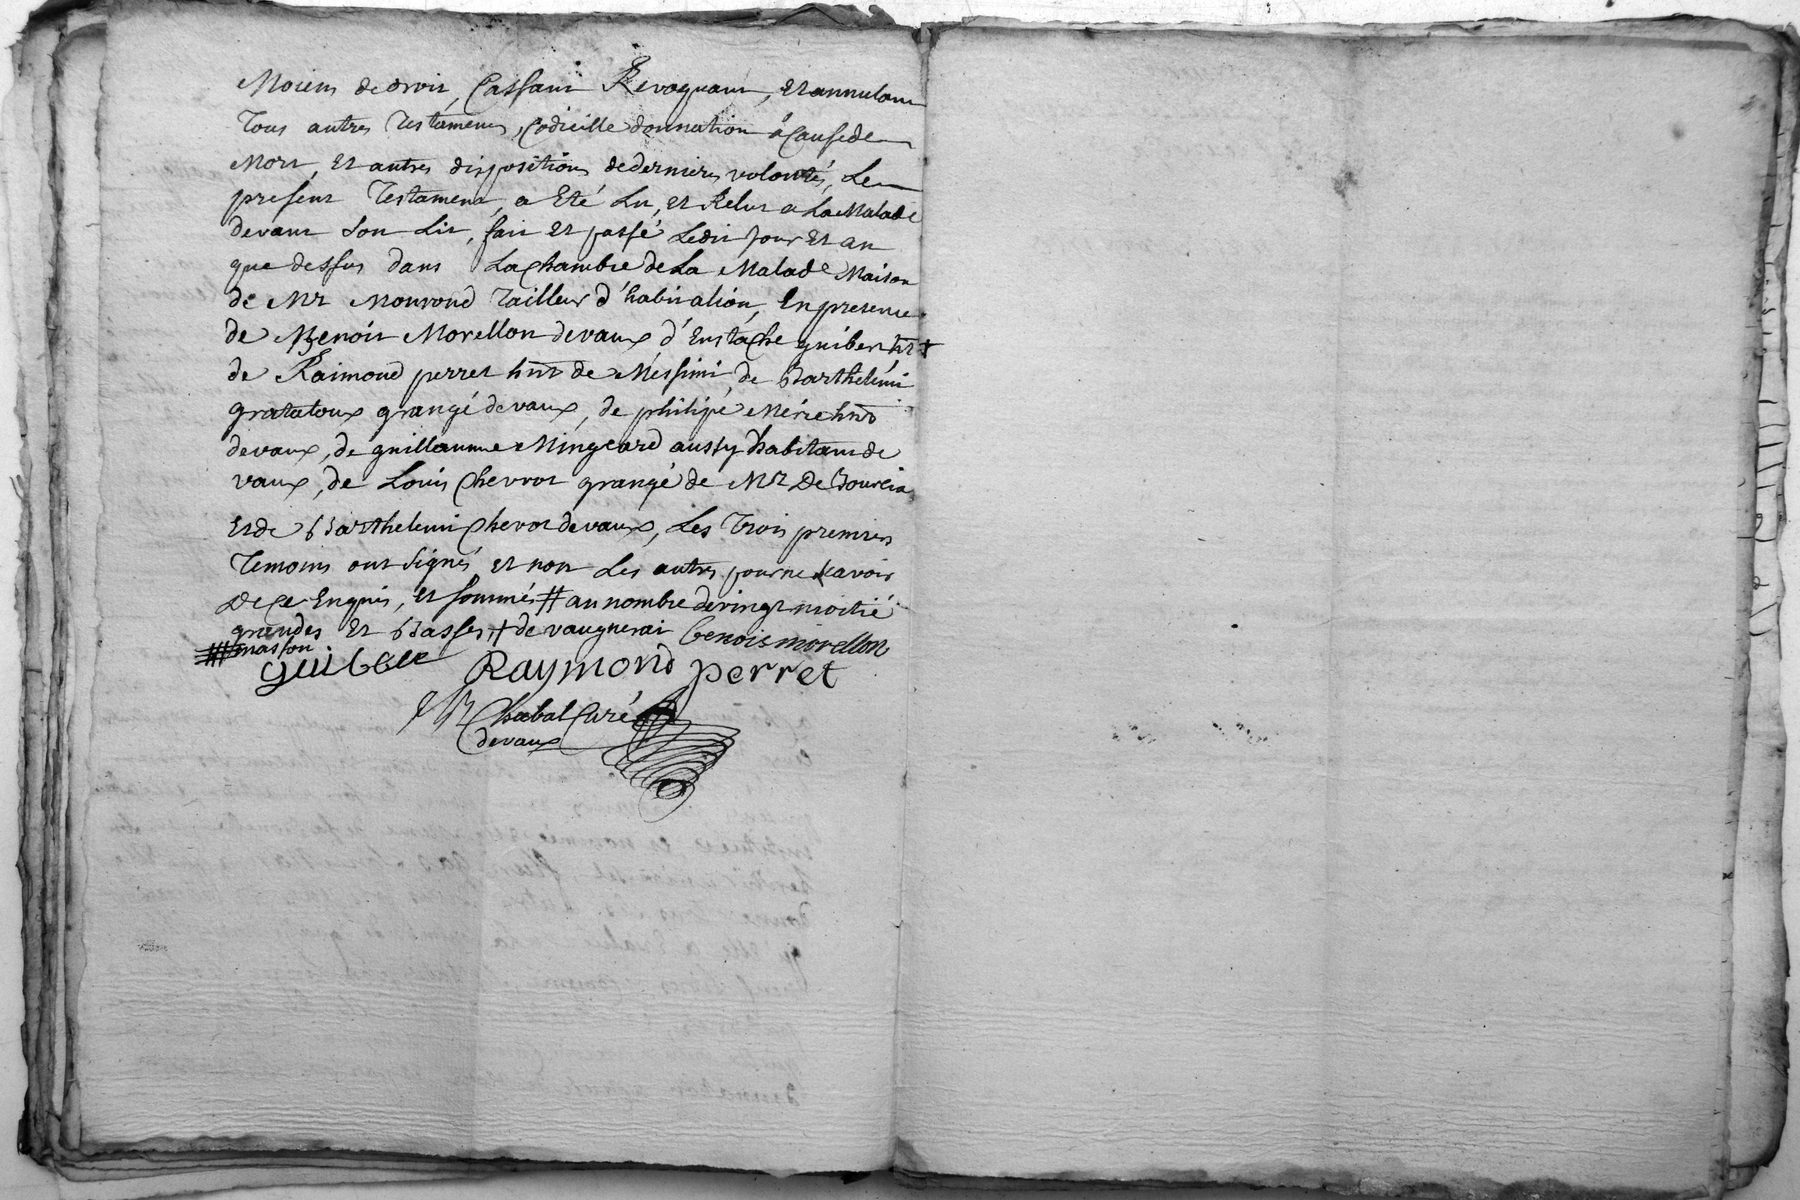 Moiens de droit, Cassant Revoquant, et annulant
Tous autres Testaments, Codicille donnation á Cause de
Mort, et autres dispositions de dernieres volontés, Le
present Testament, a Eté Lu, et Relut a La Malade
devant son Lit, fait et passé Ledit jour et an
que dessus dans La Chambre de La Malade Maison
de Mr Monrond Tailleur d'habitation, En presence
de Benoit Morellon de vaux d'Eustache guibert hnt +
de Raimond perret hnt de Méssimi, de Barthelémi
grataloux grangé de vaux, de philipe Mérie hnt
de vaux, de guillaume Mingeard aussy habitant de
vaux, de Louis Chevrot grangé de Mr De
Et de Barthelemi Chevrot de vaux, Les Trois premiers
Temoins ont signés et non Les autres pour ne scavoir
De Ce Enquis, et sommés # au nombre de vingt moitié
grandes Et Basses, + de vaugnerai benois morellon
masson
guibert Raymond perret
Chabal Curé
de vaux